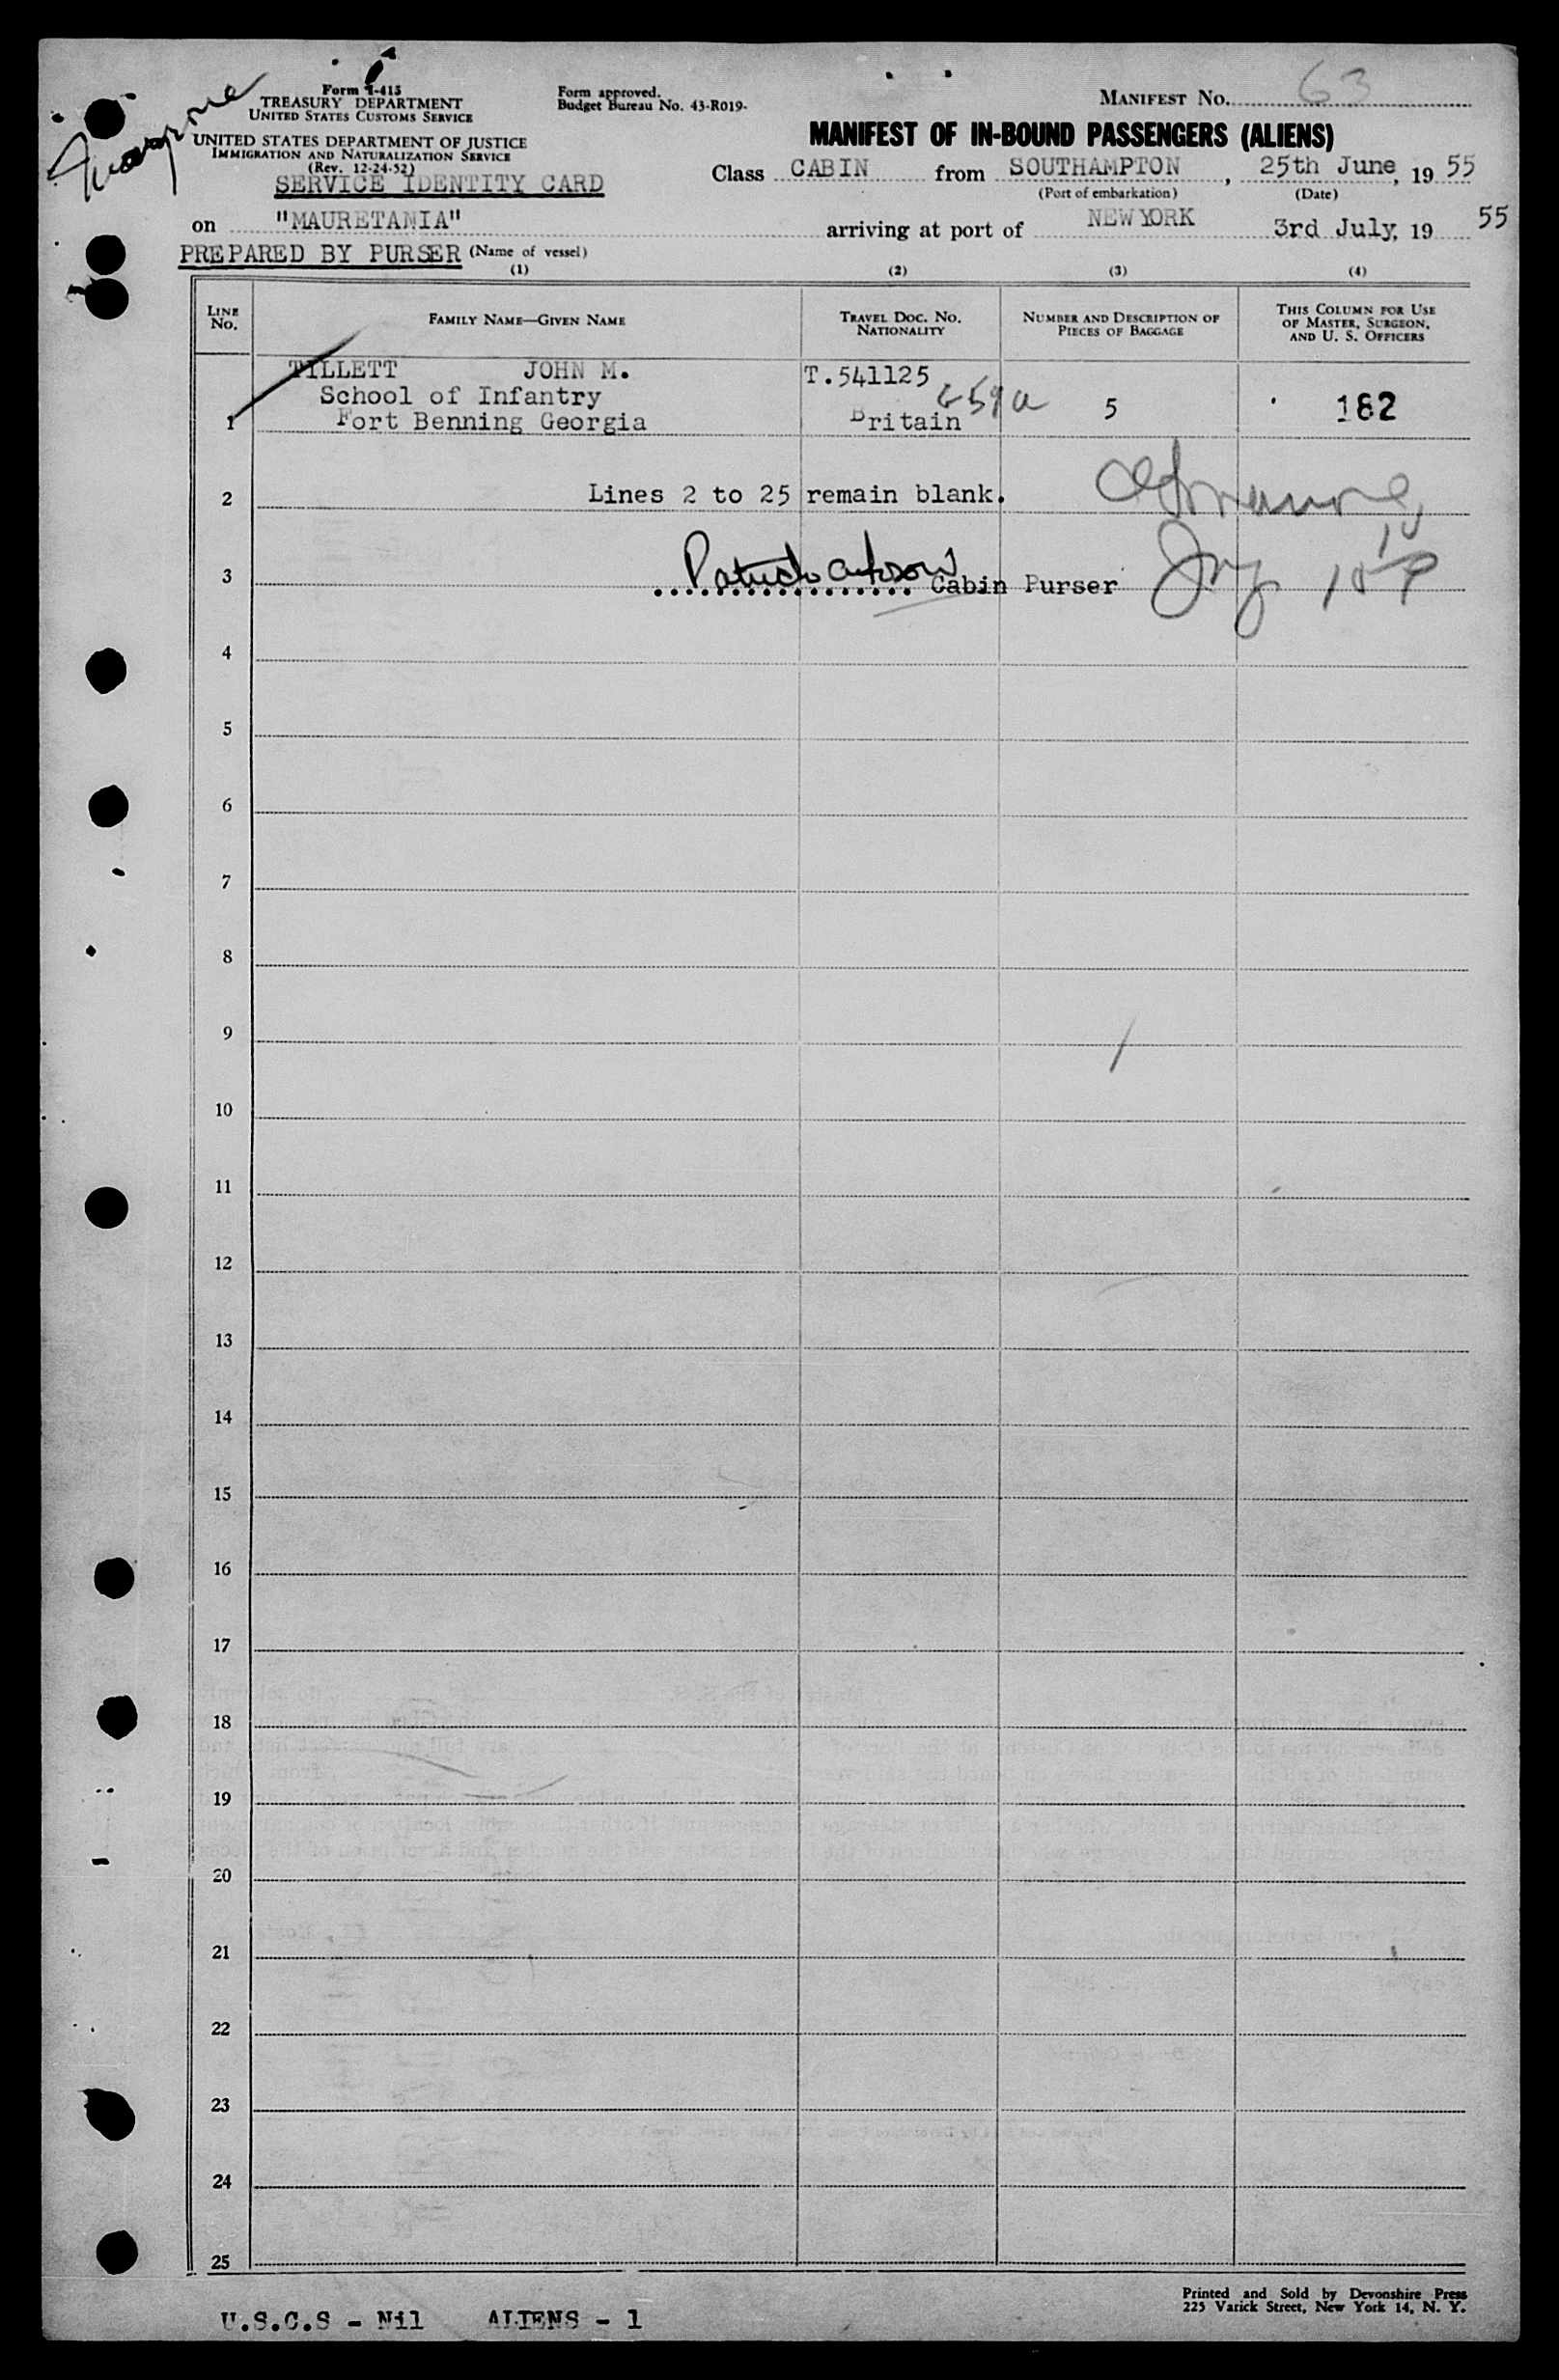 Form I-415
TREASURY DEPARTMENT
UNITED STATES CUSTOMS SERVICE
UNITED STATES DEPARTMENT OF JUSTICE
IMMIGRATION AND NATURALIZATION SERVICE
(Rev. 12-24-52)
SERVICE IDENTITY CARD
Form approved.
Budget Bureau No. 43-R019-
MANIFEST NO. 63
MANIFEST OF IN-BOUND PASSENGERS (ALIENS)
Class CABIN from SOUTHAMPTON, 25th June, 19 55
(Port of embarkation) (Date)
on "MAURETANIA" arriving at port of NEW YORK 3rd July, 19 55
PREPARED BY PURSER (Name of vessel)
(1) (2) (3) (4)
LINE NO. FAMILY NAME—GIVEN NAME TRAVEL DOC. NO. NATIONALITY NUMBER AND DESCRIPTION OF PIECES OF BAGGAGE THIS COLUMN FOR USE OF MASTER, SURGEON, AND U. S. OFFICERS
TILLETT JOHN M. T.541125
School of Infantry
1 Fort Benning Georgia Britain 5 182
2 Lines 2 to 25 remain blank.
3 Cabin Purser
4
5
6
7
8
9
10
11
12
13
14
15
16
17
18
19
20
21
22
23
24
25
Printed and Sold by Devonshire Press
225 Varick Street, New York 14, N. Y.
U.S.C.S - Nil ALIENS - 1